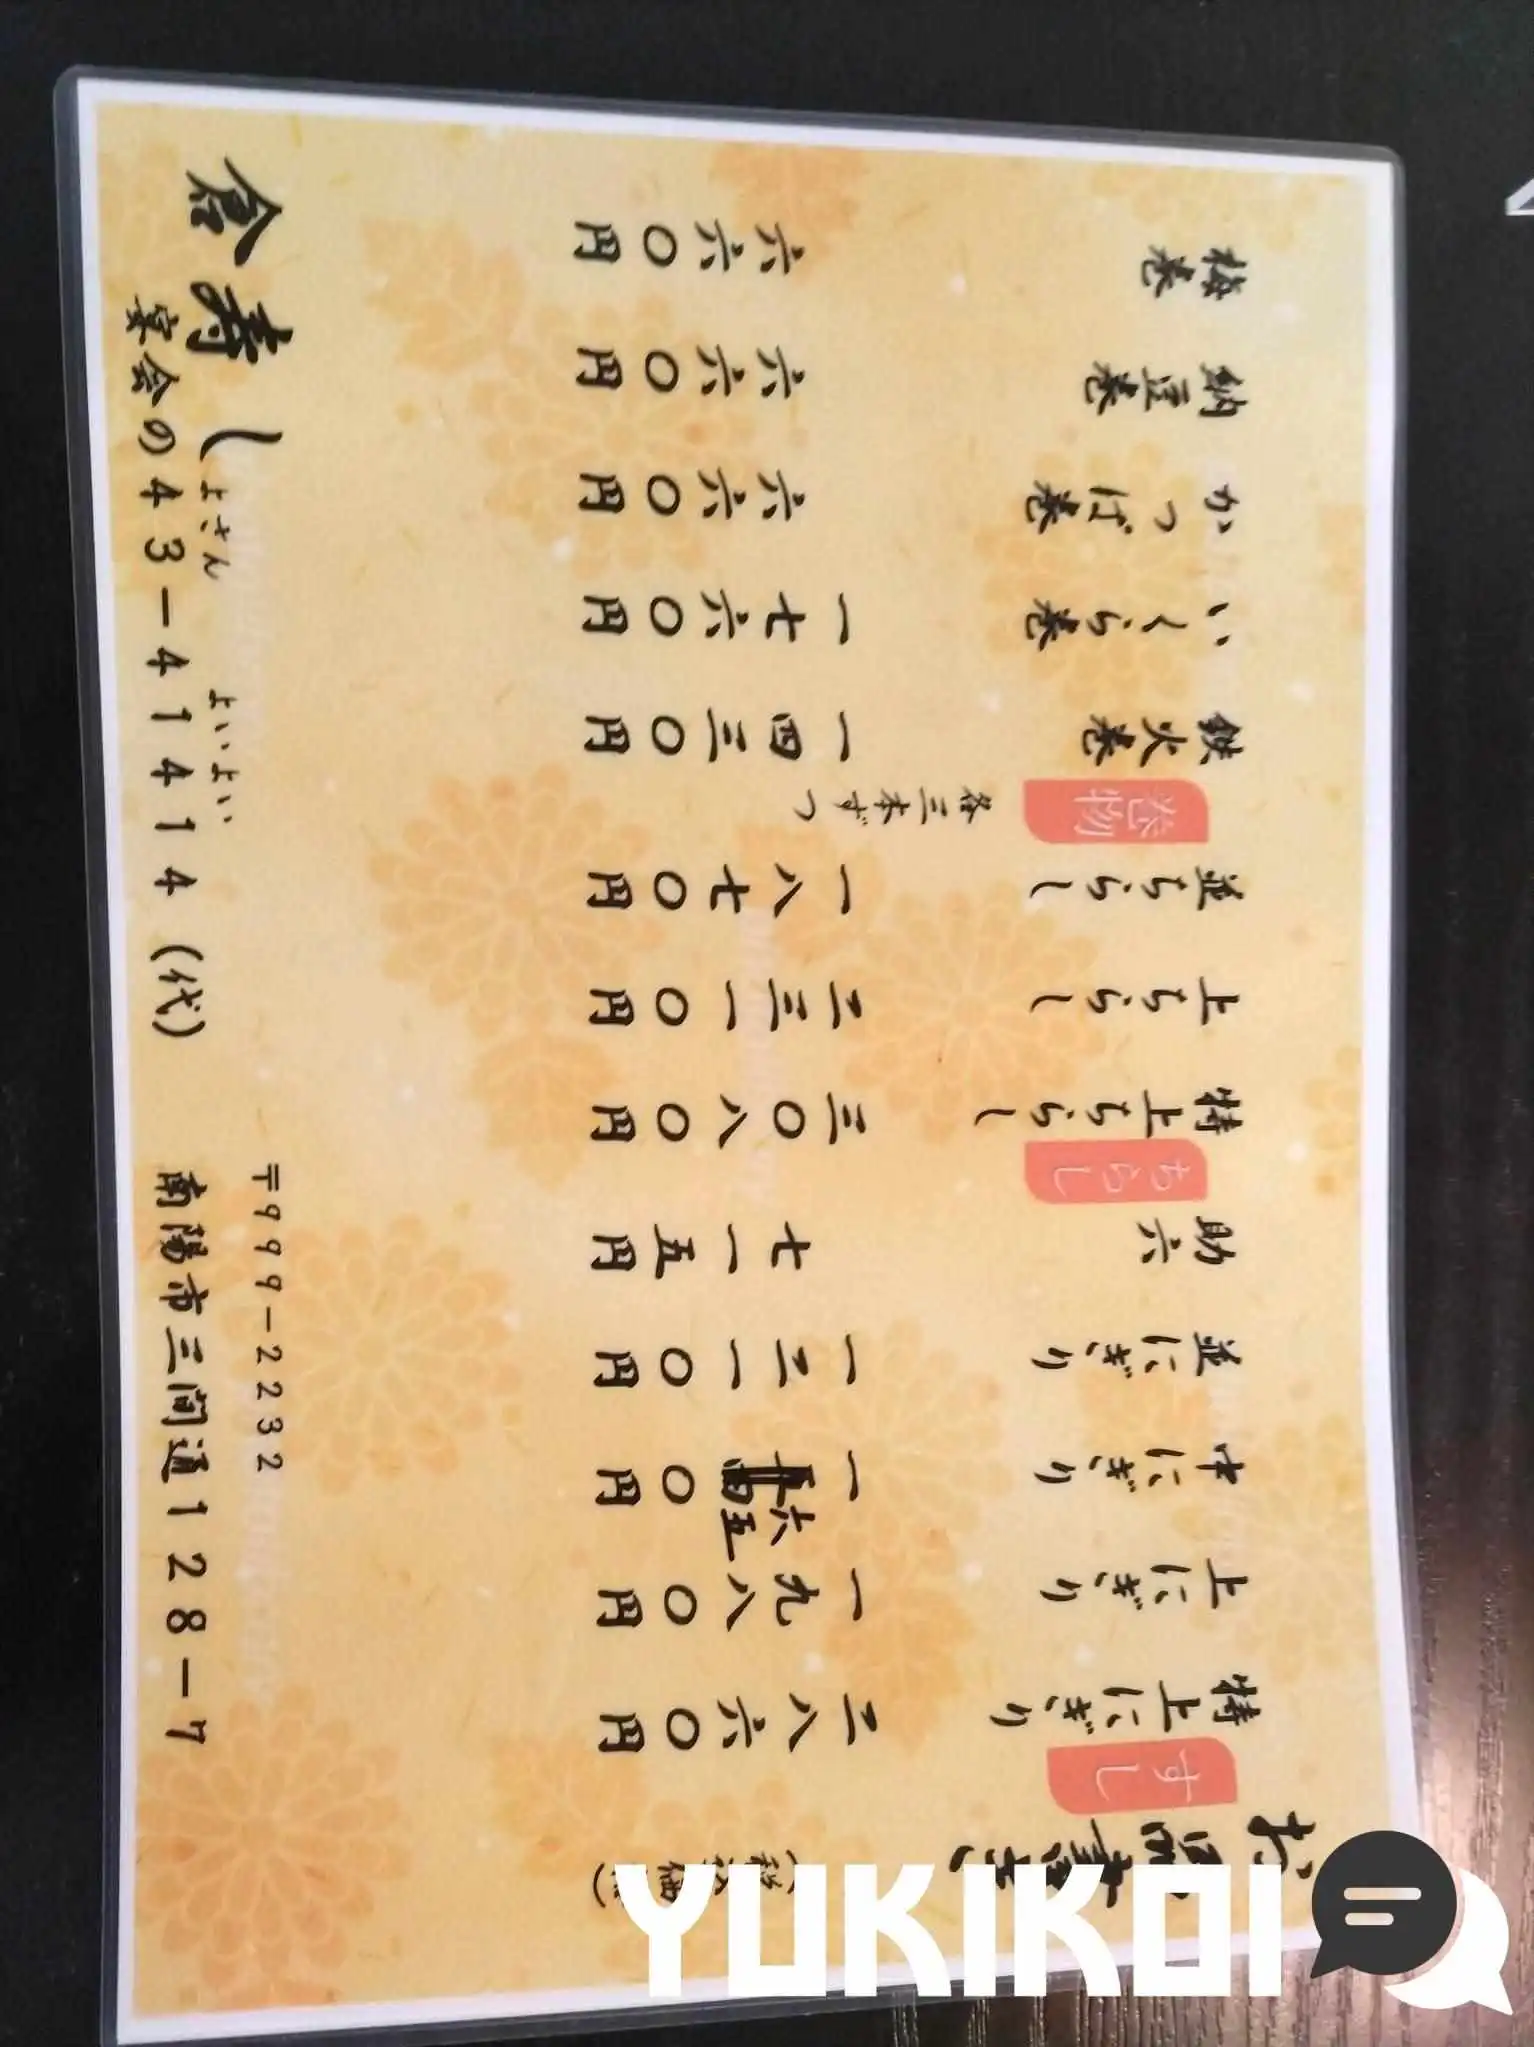 お品書き
(税込価格)
すし
特上にぎり 二八六〇円
上にぎり 一九八〇円
中にぎり 一六五〇円
並にぎり 一二一〇円
助六 七一五円
ちらし
特上ちらし 三〇八〇円
上ちらし 二三一〇円
並ちらし 一八七〇円
巻物 各三本ずつ
鉄火巻 一四三〇円
いくら巻 一七六〇円
かっぱ巻 六六〇円
納豆巻 六六〇円
梅巻 六六〇円
倉寿し
よさん よいよい
宴会の43-41414(代)
〒999-2232
南陽市三間通128-7
YUKIKOI